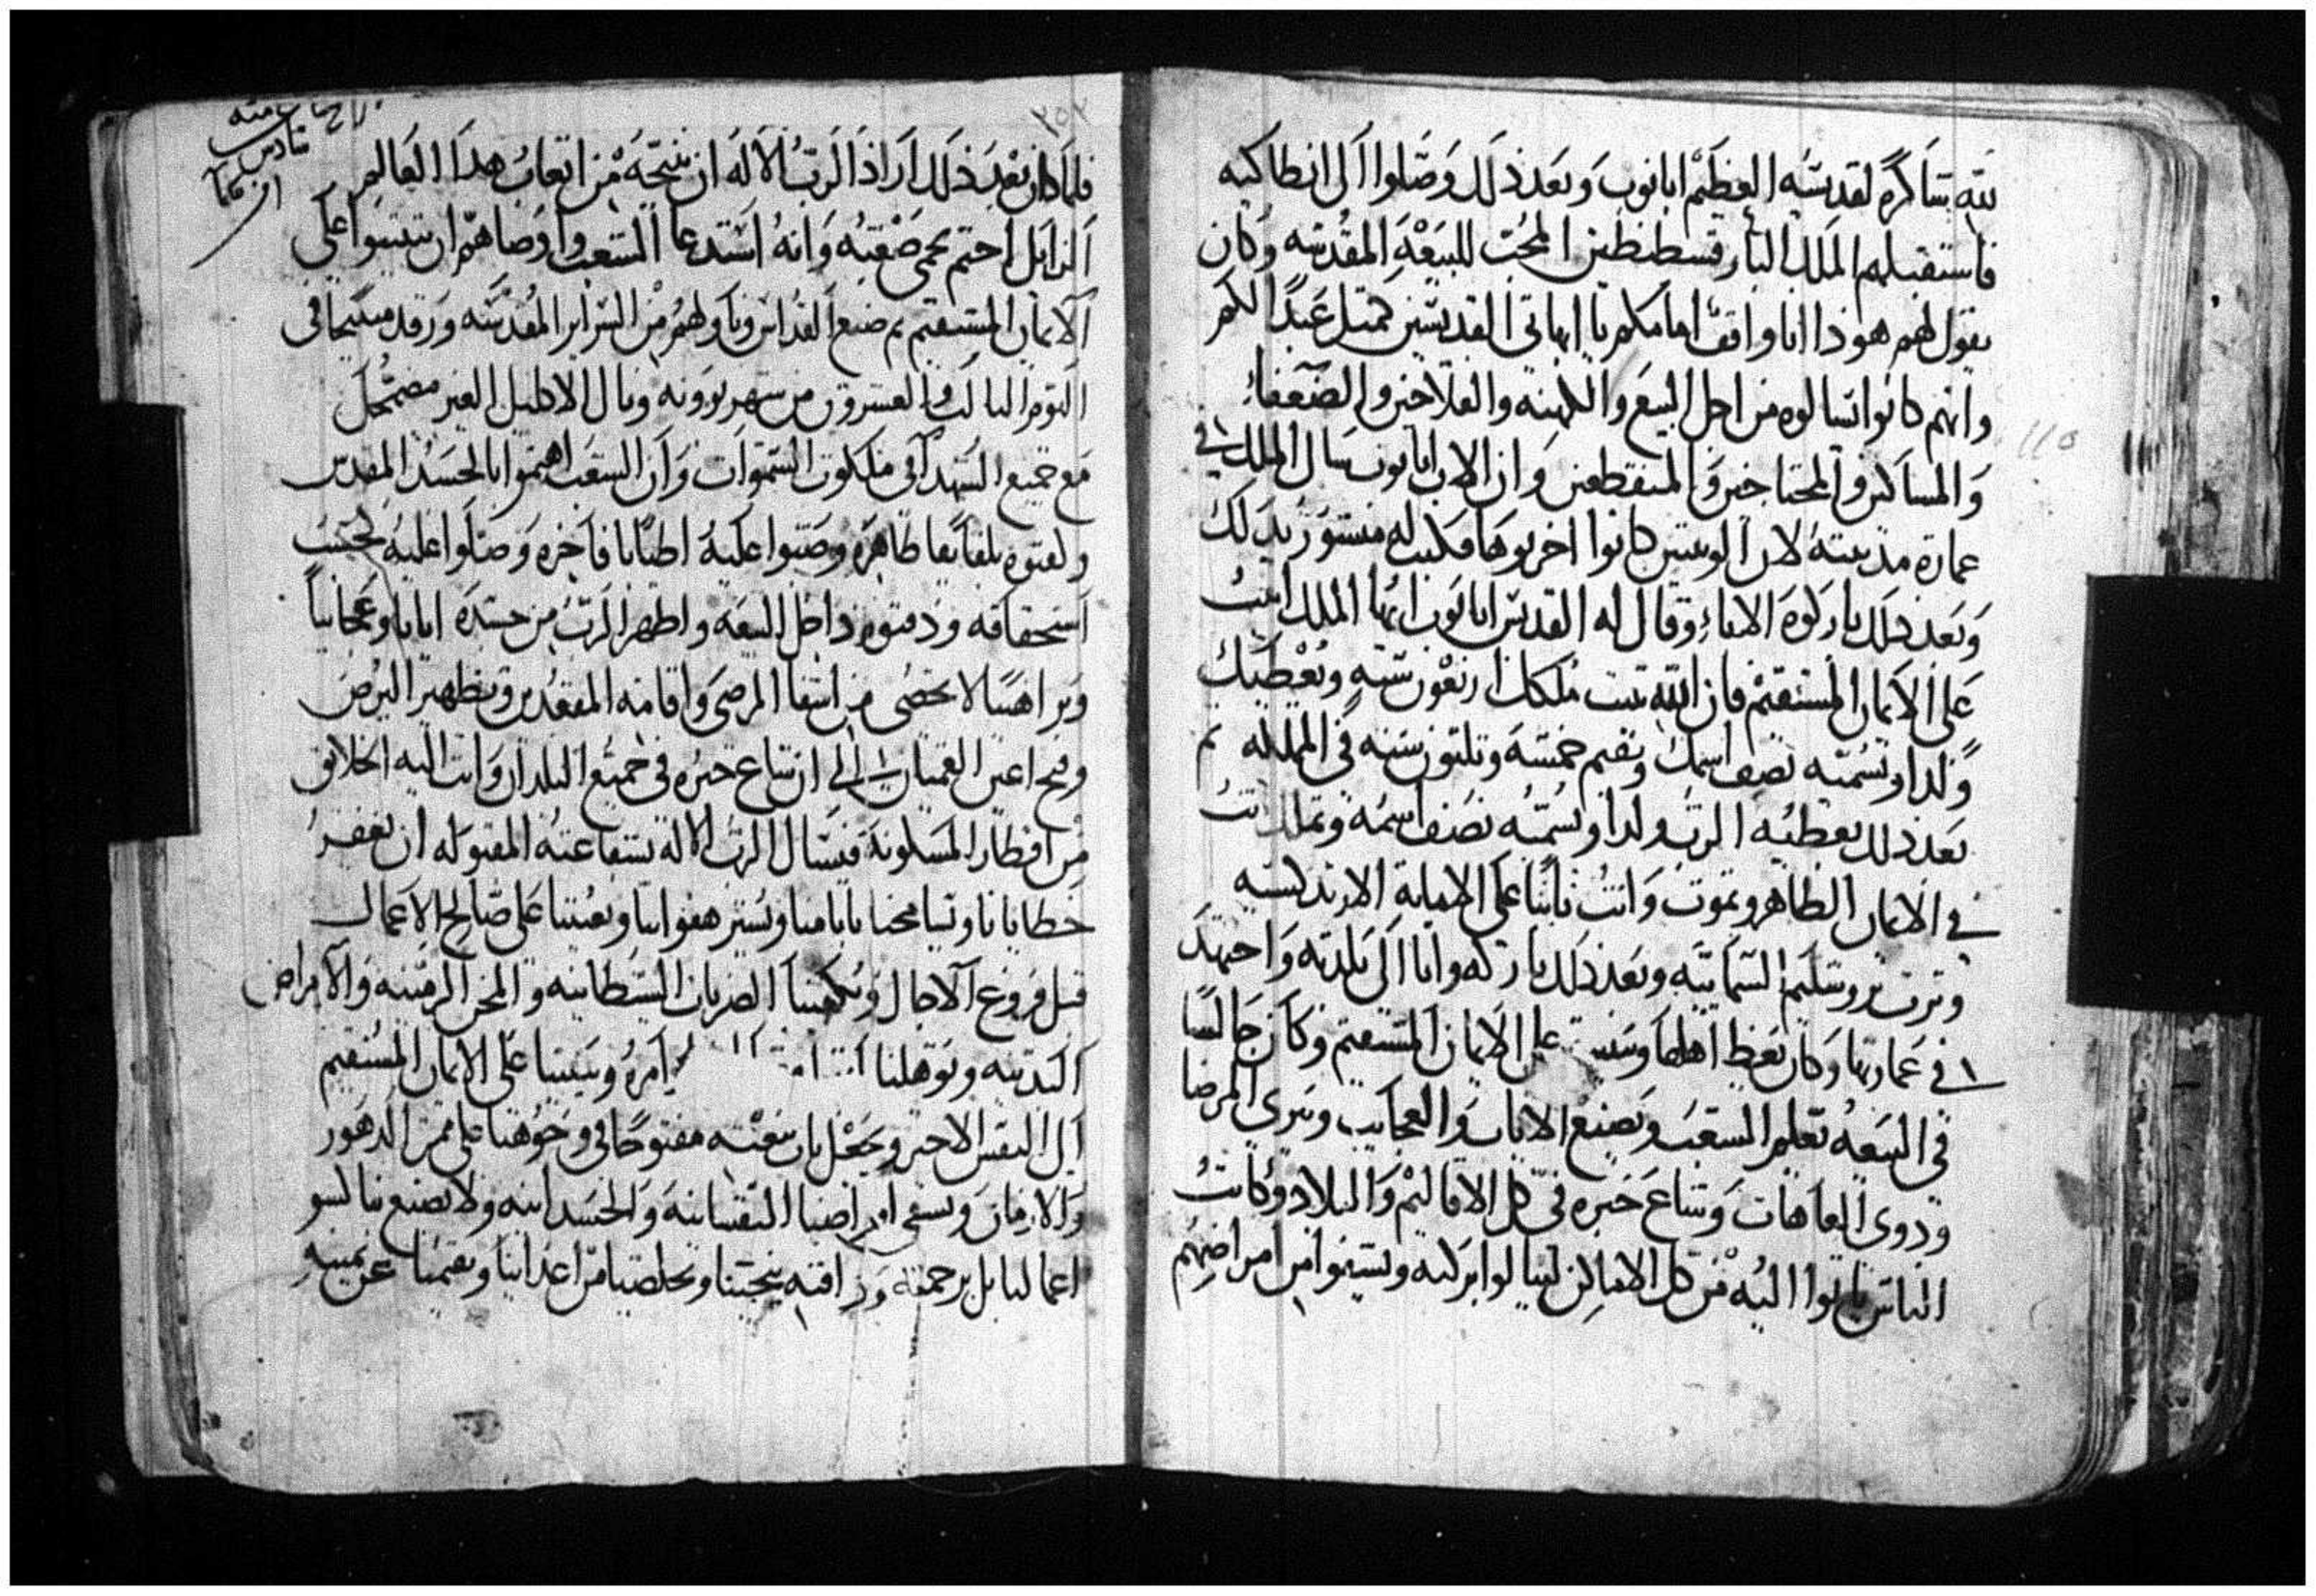 لله شاكره لقديسه العظيم ابانوب وبعد ذلك وصلوا الى انطاكيه
فاستقبلهم الملك البار قسطنطين المحب للبيعه المقدسه وكان
يقول لهم هوذا انا واقف امامكم يا ابهاتي القديسين كمثل عبدا لكم
وانهم كانوا يسالوه من اجل البيع والكهنه والفلاحين والضعفاء
والمساكين والمحتاجين والمنقطعين وان الاب ابانوب سال الملك في
عمارة مدينته لان الوثنين كانوا اخربوها فكتب له منشور بذلك
وبعد ذلك باركوه الاباء وقال له القديس ابانوب ايها الملك اثبت
على الايمان المستقيم فان الله يثبت ملكك اربعون سنه ويعطيك
ولدا وتسميه نصف اسمك ويقيم خمسه وثلثون سنه في المملكه ثم
بعد ذلك يعطيه الرب ولدا ويسميه نصف اسمه وتملك
في الايمان الطاهر وتموت وانت ثابتا على الامانة الارتدكسيه
وترث يروشليم السمائيه وبعد ذلك باركه واتا الى بلدته واجتهد
في عمارتها وكان يعظ اهلها على الايمان المستقيم وكان جالسا
في البيعه يعلم الشعب ويصنع الايات والعجايب ويبرى المرضا
وذوى العاهات وشاع خبره في كل الاقاليم والبلاد وكانت
الناس ياتوا اليه من كل الاماكن لينالوا بركته ويشفوا من امراضهم
٢٥٢
فلما كان بعد ذلك اراد الرب الاله ان ينيحه من اتعاب هذا العالم
الزايل احتم بحمى صعبه وانه استدعا الشعب واوصاهم ان يثبتوا على
الايمان المستقيم ثم صنع القداس وناولهم من السراير المقدسه ورقد متنيحا في
اليوم الثالث والعشرون من شهر بوونه ونال الاكليل الغير مضمحل
مع جميع الشهدا في ملكوت السموات وان الشعب اهتموا بالجسد المقدس
ولفوه بلفايفا طاهره وصبوا عليه اطيابا فاخره وصلوا عليه بحسب
استحقاقه ودفنوه داخل البيعه واظهر الرب من جسده اياتا وعجائبا
وبراهينا لا تحصى من اشفا المرضى واقامة المقعدين وتطهير البرص
وفتح اعين العميان الى ان شاع خبره في جميع البلدان واتت اليه الخلايق
من اقطار المسكونة فنسال الرب الاله بشفاعته المقبوله ان يغفر
خطايانا ويسامحنا باثامنا ويستر هفواتنا ويعيننا على صالح الاعمال
قبل فروغ الاجال ويكفينا الضربات الشيطانيه والمحن الزمنيه والامراض
البدنيه ويوهلنا ويثبتنا على الايمان المستقيم
الى النفس الاخير ويجعل باب بيعته مفتوحا في وجوهنا على ممر الدهور
والازمان ويشفي امراضنا النفسانيه والجسدانيه ولا يصنع بنا كسو
اعمالنا بل برحمته ورافته ينجينا ويخلصنا من اعداينا ويقيمنا عن يمينه